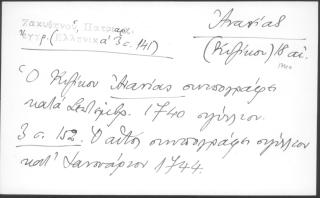 Ζακυθηνοῦ, Πατριαρχ.
ἔγγρ. (Ἑλληνικά 3 σ. 141)
Ἀνανίας
(Κυζίκου) 18 αἰ.
Ὁ Κυζίκου Ἀνανίας συνυπογράφει
κατά Σεπτέμβρ. 1740 σιγίλλιον.
3 σ. 152. Ὁ αὐτός συνυπογράφει σιγίλλιον
κατ' Ἰανουάριον 1744.